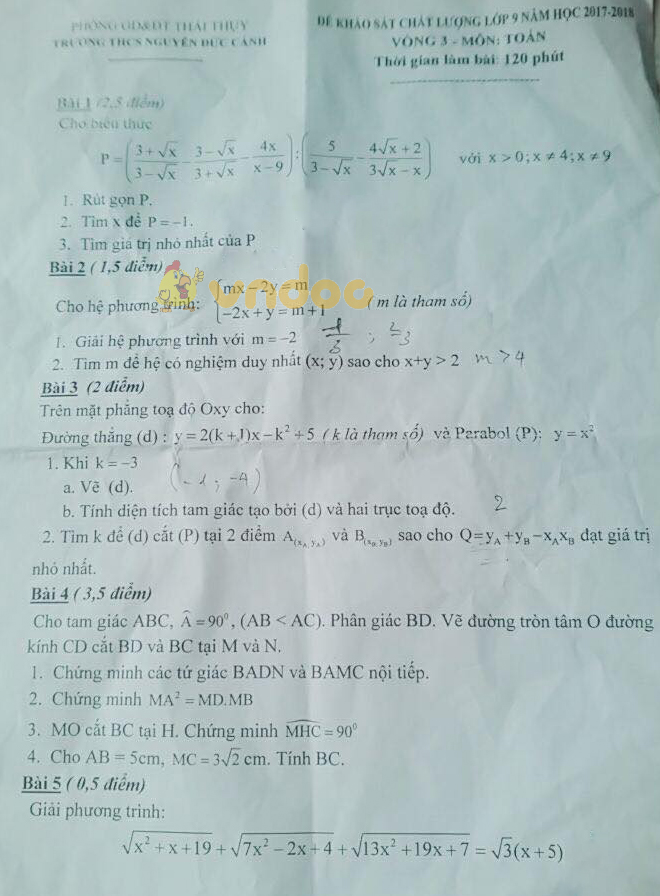 PHÒNG GD&ĐT THÁI THỤY
TRƯỜNG THCS NGUYỄN ĐỨC CẢNH
ĐỀ KHẢO SÁT CHẤT LƯỢNG LỚP 9 NĂM HỌC 2017-2018
VÒNG 3 - MÔN: TOÁN
Thời gian làm bài: 120 phút
Bài 1 (2,5 điểm)
Cho biểu thức
P = ((3+√x)/(3−√x) − (3−√x)/(3+√x) − 4x/(x−9)) : (5/(3−√x) − (4√x+2)/(3√x−x)) với x > 0; x ≠ 4; x ≠ 9
1. Rút gọn P.
2. Tìm x để P = −1.
3. Tìm giá trị nhỏ nhất của P
Bài 2 ( 1,5 điểm)
vndoc
Cho hệ phương trình: { mx − 2y = m
−2x + y = m + 1 ( m là tham số)
1. Giải hệ phương trình với m = −2
2. Tìm m để hệ có nghiệm duy nhất (x; y) sao cho x+y > 2 m > 4
Bài 3 (2 điểm)
Trên mặt phẳng toạ độ Oxy cho:
Đường thẳng (d) : y = 2(k + 1)x − k² + 5 ( k là tham số) và Parabol (P): y = x²
1. Khi k = −3
a. Vẽ (d). (-1; -4)
b. Tính diện tích tam giác tạo bởi (d) và hai trục toạ độ. 2
2. Tìm k để (d) cắt (P) tại 2 điểm A(x_A, y_A) và B(x_B, y_B) sao cho Q=y_A+y_B−x_Ax_B đạt giá trị
nhỏ nhất.
Bài 4 ( 3,5 điểm)
Cho tam giác ABC, Â = 90⁰, (AB < AC). Phân giác BD. Vẽ đường tròn tâm O đường
kính CD cắt BD và BC tại M và N.
1. Chứng minh các tứ giác BADN và BAMC nội tiếp.
2. Chứng minh MA² = MD.MB
3. MO cắt BC tại H. Chứng minh MHC = 90⁰
4. Cho AB = 5cm, MC = 3√2 cm. Tính BC.
Bài 5 ( 0,5 điểm)
Giải phương trình:
√(x² + x + 19) + √(7x² − 2x + 4) + √(13x² + 19x + 7) = √3(x + 5)